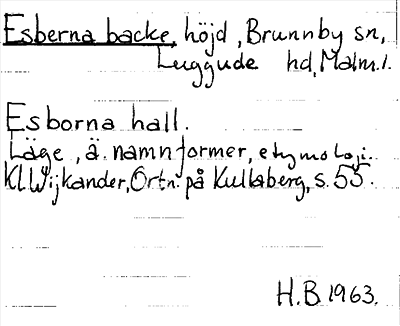 Esberna backe, höjd, Brunnby sn,
Luggude hd, Malm.l.
Esborna hall.
Läge, ä. namnformer, etymologi.
Kl. Wijkander, Ortn. på Kullaberg, s. 55.
H.B. 1963.